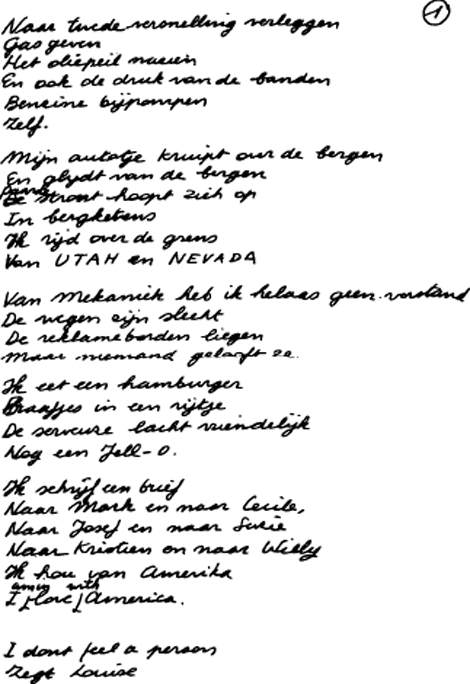 1
Naar tweede versnelling verleggen
Gas geven
Het oliepeil nazien
En ook de druk van de banden
Benzine bijpompen
Zelf.
Mijn autotje kruipt over de bergen
En glijdt van de bergen
De Stront hoopt zich op
In bergketens
Ik rijd over de grens
Van UTAH en NEVADA
Van mekaniek heb ik helaas geen verstand
De wegen zijn slecht
De reklameborden liegen
Maar niemand gelooft ze.
Ik eet een hamburger
in een rijtje
De serveuse lacht vriendelijk
Nog een Jell-O.
Ik schrijf een brief
Naar Mark en naar Cecile,
Naar Josef en naar Suzie
Naar Kristien en naar Willy
Ik hou van Amerika
am in with
I love America.
I dont feel a person
Zegt Louise